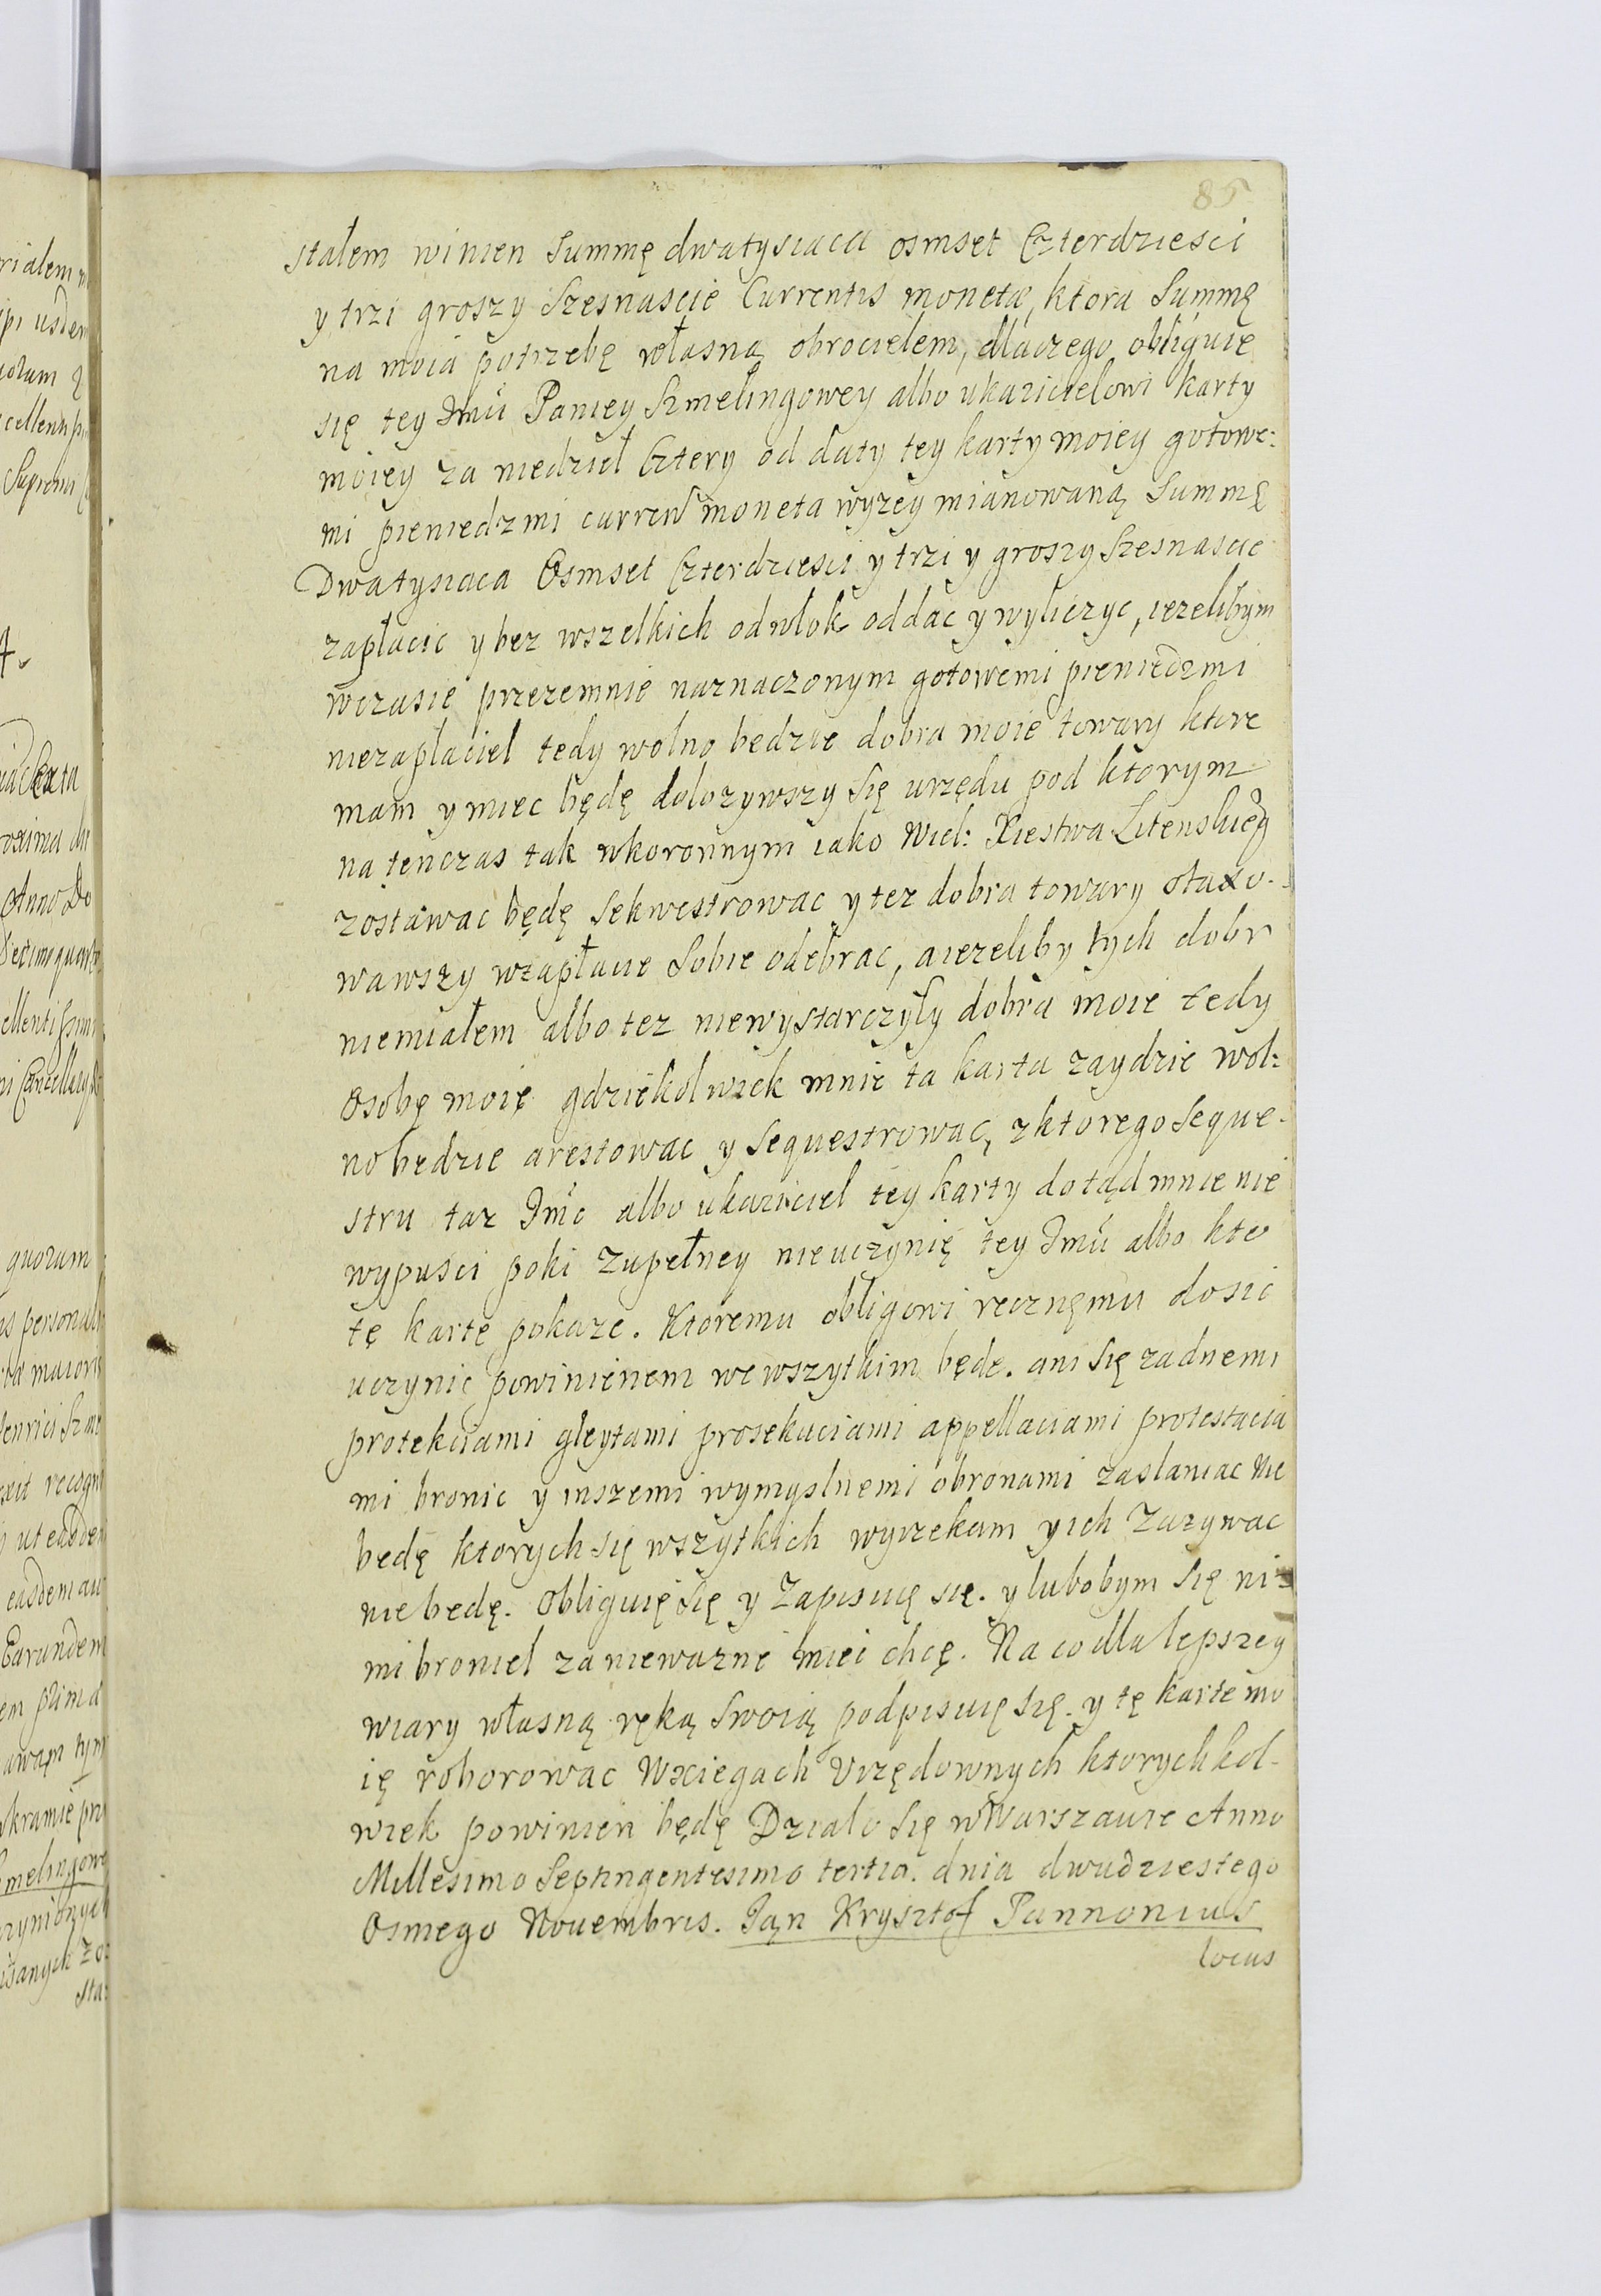 85
stałem winien Summę dwatysiaca osmset Czterdziesci
y trzi groszy Szesnascie Currentis moneta, ktora Summę
na moia potrzebę własną obrocielem, dlaczego obliguię
się tey Jmći Paniey Szmelingowey albo ukazicielowi karty
moiey za niedziel Cztery od daty tey karty moiey gotowe:
mi pieniedzmi curren moneta wyzey mianowaną Summę
Dwatysiaca Osmset Czterdziesci y trzi y groszy Szesnascie
zapłacic y bez wszelkich odwłok oddac y wyliczyc, iezelibym
wczasie przezemnie naznaczonym gotowemi pieniedzmi
niezapłaciel tedy wolno bedzie dobra moie towary ktore
mam y miec będę dolozywszy się urzędu pod ktorym
na tenczas tak wkoronnym iako Wiel: Xiestwa Litenskieg
zostawac będę Sekwestrowac y tez dobra towary otaxo-
wawszy wzapłacie Sobie odebrac, aiezeliby tych dobr
niemiałem albo tez niewystarczyły dobra moie tedy
Osobę moię gdziekolwiek mnie ta karta zaydzie wol:
no będzie arestowac y Sequestrowac, zktorego Seque-
stru taz Jmć albo ukaziciel tey karty dotąd mnie nie
wypusci poki Zupełney nieuczynię tey Jmći albo kto
tę kartę pokaze. Ktoremu obligowi ręcznęmu dosic
uczynic powinienem wewszytkim będę. ani się zadnemi
protekciami gleytami prosekuciami appellaciami protestacia
mi bronic y inszemi wymyslnemi obronami zaslaniac nie
bedę ktorych się wszytkich wyrzekam y ich Zazywac
nie będę. Obliguię się y Zapisuię się. y lubobym się ni-
mi broniel za niewazne miei chcę. Na co dla lepszey
wiary własną ręką Swoią podpisuię się. y tę kartę mo
ię roborowac Wxiegach Urzędownych ktorychkol-
wiek powinien będę Działo się wWarszawie Anno
Millesimo Septingentesimo tertia. dnia dwudziestego
Osmego Nouembris. Jan Krysztof Pannonius
locus